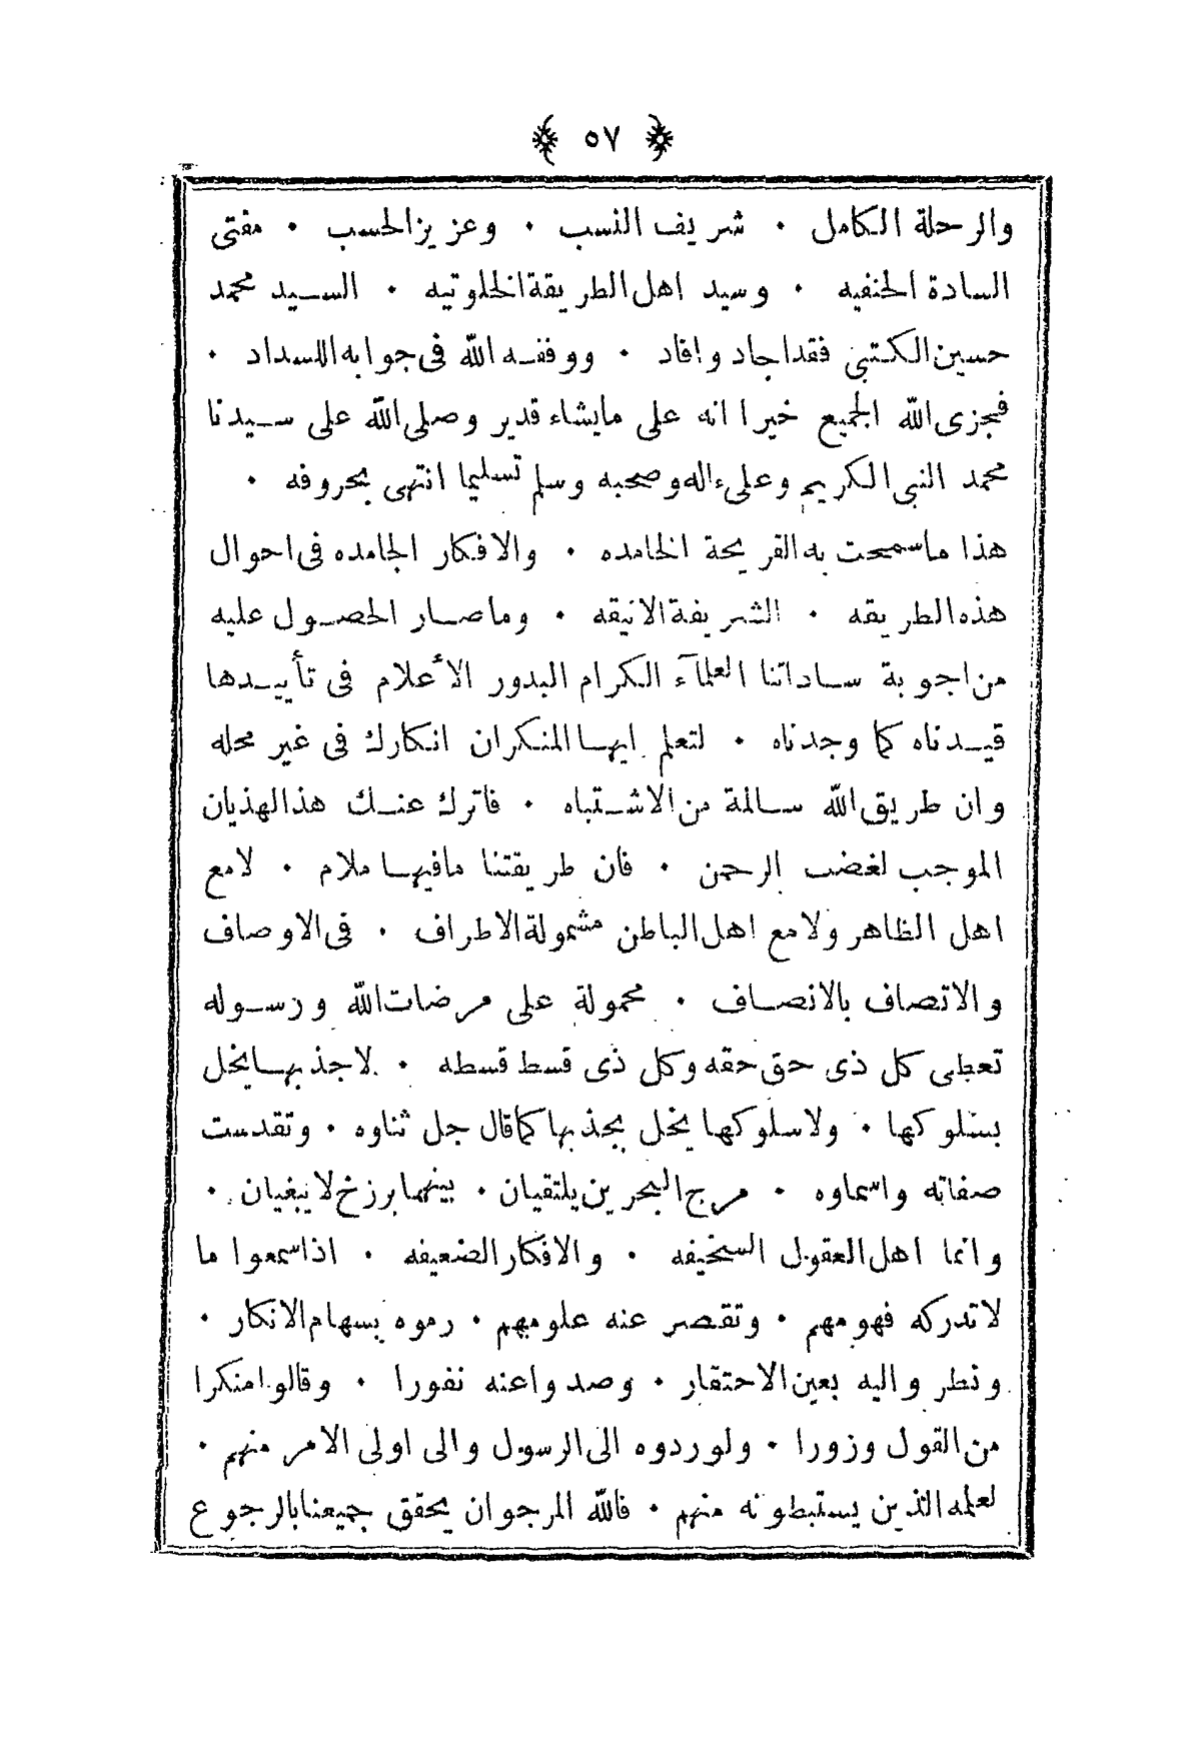 ﴿ ٥٧ ﴾
والرحلة الكامل ٠ شريف النسب ٠ وعزيز الحسب ٠ مفتى
السادة الحنفيه ٠ وسيد اهل الطريقة الخلوتيه ٠ السيد محمد
حسين الكتبى فقد اجاد وافاد ٠ ووفقه الله فى جوابه للسداد ٠
فجزى الله الجميع خيرا انه على ما يشاء قدير وصلى الله على سيدنا
محمد النبى الكريم وعلى ءاله وصحبه وسلم تسليما انتهى بحروفه ٠
هذا ما سمحت به القريحة الخامده ٠ والافكار الجامده فى احوال
هذه الطريقه ٠ الشريفة الانيقه ٠ وما صار الحصول عليه
من اجوبة ساداتنا العلمآء الكرام البدور الأعلام فى تأييدها
قيدناه كما وجدناه ٠ لتعلم ايها المنكر ان انكارك فى غير محله
وان طريق الله سالمة من الاشتباه ٠ فاترك عنك هذا لهذيان
الموجب لغضب الرحمن ٠ فان طريقتنا ما فيها ملام ٠ لا مع
اهل الظاهر ولا مع اهل الباطن مشمولة الاطراف ٠ فى الاوصاف
والاتصاف بالانصاف ٠ محمولة على مرضات الله ورسوله
تعطى كل ذى حق حقه وكل ذى قسط قسطه ٠ لا جذبها يخل
بسلوكها ٠ ولا سلوكها يخل بجذبها كما قال جل ثناوه ٠ وتقدست
صفاته واسماوه ٠ مرج البحرين يلتقيان ٠ بينهما برزخ لا يبغيان ٠
وانما اهل العقول السخيفه ٠ والافكار الضعيفه ٠ اذا سمعوا ما
لا تدركه فهومهم ٠ وتقصر عنه علومهم ٠ رموه بسهام الانكار ٠
ونظروا اليه بعين الاحتقار ٠ وصدوا عنه نفورا ٠ وقالوا منكرا
من القول وزورا ٠ ولو ردوه الى الرسول والى اولى الامر منهم ٠
لعلمه الذين يستبطونه منهم ٠ فالله المرجو ان يحقق جميعنا بالرجوع